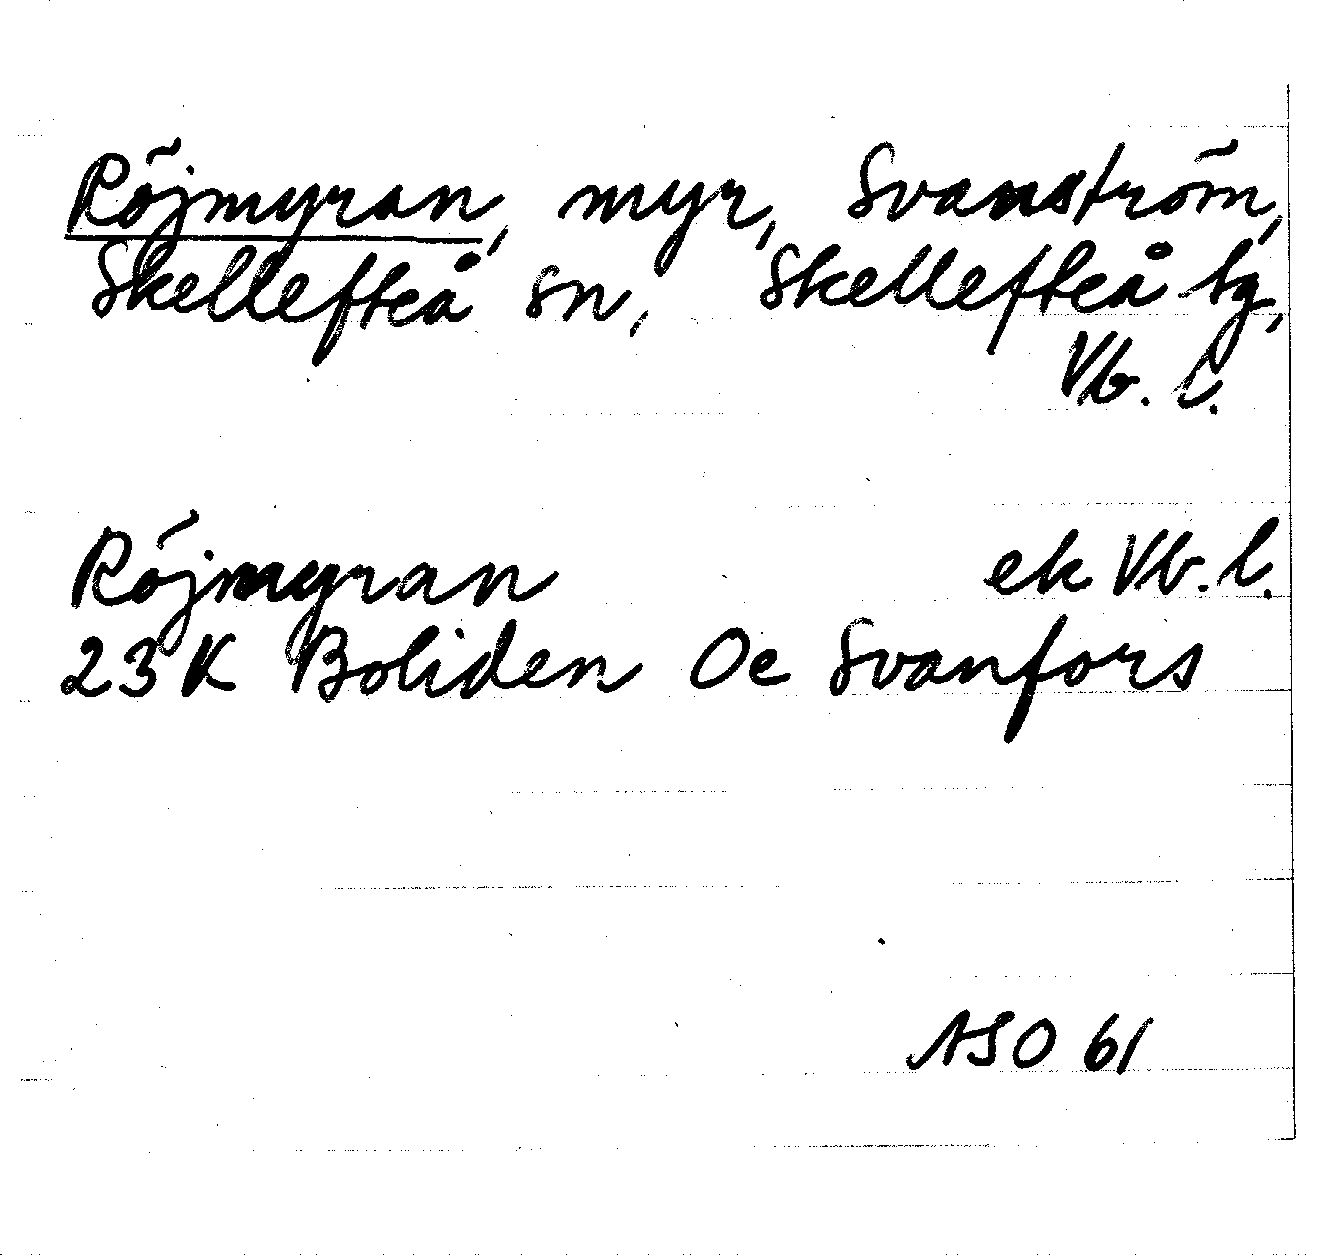 Röjmyran, myr, Svanström,
Skellefteå sn, Skellefteå tg,
Vb. l.
Röjmyran ek Vb. l.
23K Boliden Oe Svanfors
ASO 61